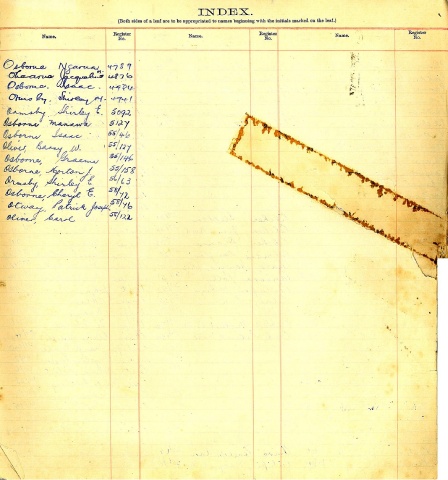 INDEX.
(Both sides of a leaf are to be appropriated to names beginning with the initials marked on the leaf.)
Name. Register No. Name. Register No. Name. Register No.
Osborne Ngaroma 4789
Jacqueline 4876
Osborne Isaac
Ormsby, Shirley M. 4941
Ormsby Shirley E. 5092
Osborne Manawa 5127
Osborne Isaac 55/46
Oliver Barry W. 55/127
Osborne, Graeme 55/146
Osborne Norton J. 55/158
Ormsby Shirley E. 56/63
Osborne, Cheryl E. 58/72
Otway Patrick Joseph 58/76
Oliver, Carol 58/122